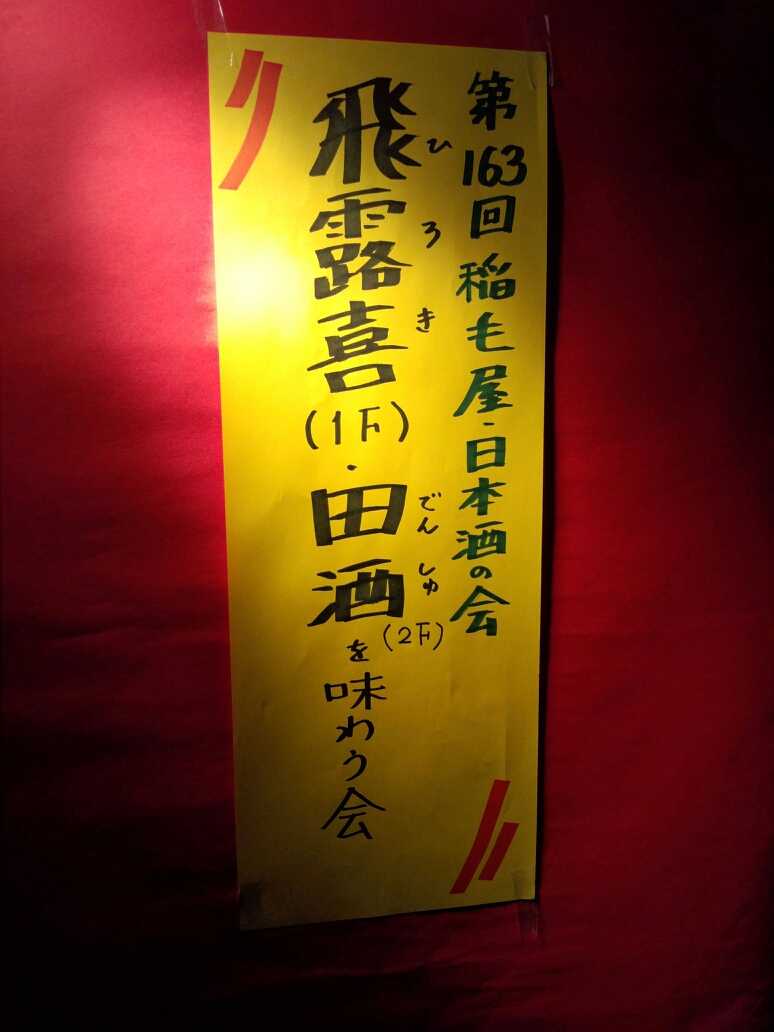 第163回 稲毛屋・日本酒の会
飛露喜(1F)・田酒(2F)を味わう会
ひろき
でんしゅ